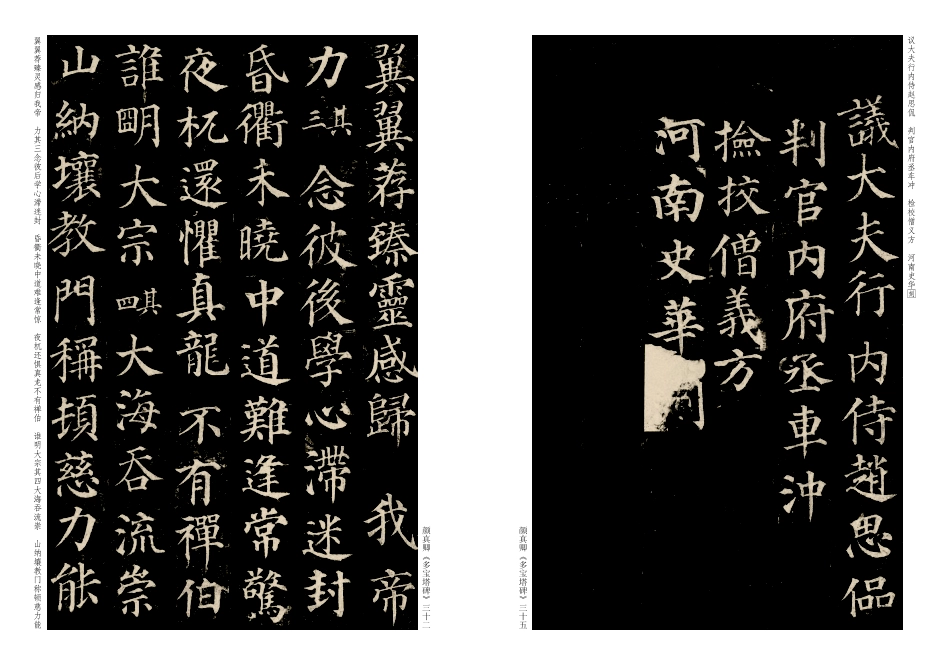 议大夫行内侍赵思侃　判官内府丞车冲　检校僧义方　河南史华刻
議大夫行内侍趙思侃
判官内府丞車沖
撿挍僧義方
河南史華刻
颜真卿《多宝塔碑》三十五
翼翼荐臻灵感归我帝　力其三念彼后学心滞迷封　昏衢未晓中道难逢常惊　夜杌还惧真龙不有禅伯　谁明大宗其四大海吞流崇　山纳壤教门称顿慈力能
翼翼荐臻靈感歸 我帝
力其三 念彼後學心滯迷封
昏衢未曉中道難逢常驚
夜杌還懼真龍不有禪伯
誰明大宗其四 大海吞流崇
山納壤教門稱頓慈力能
颜真卿《多宝塔碑》三十二